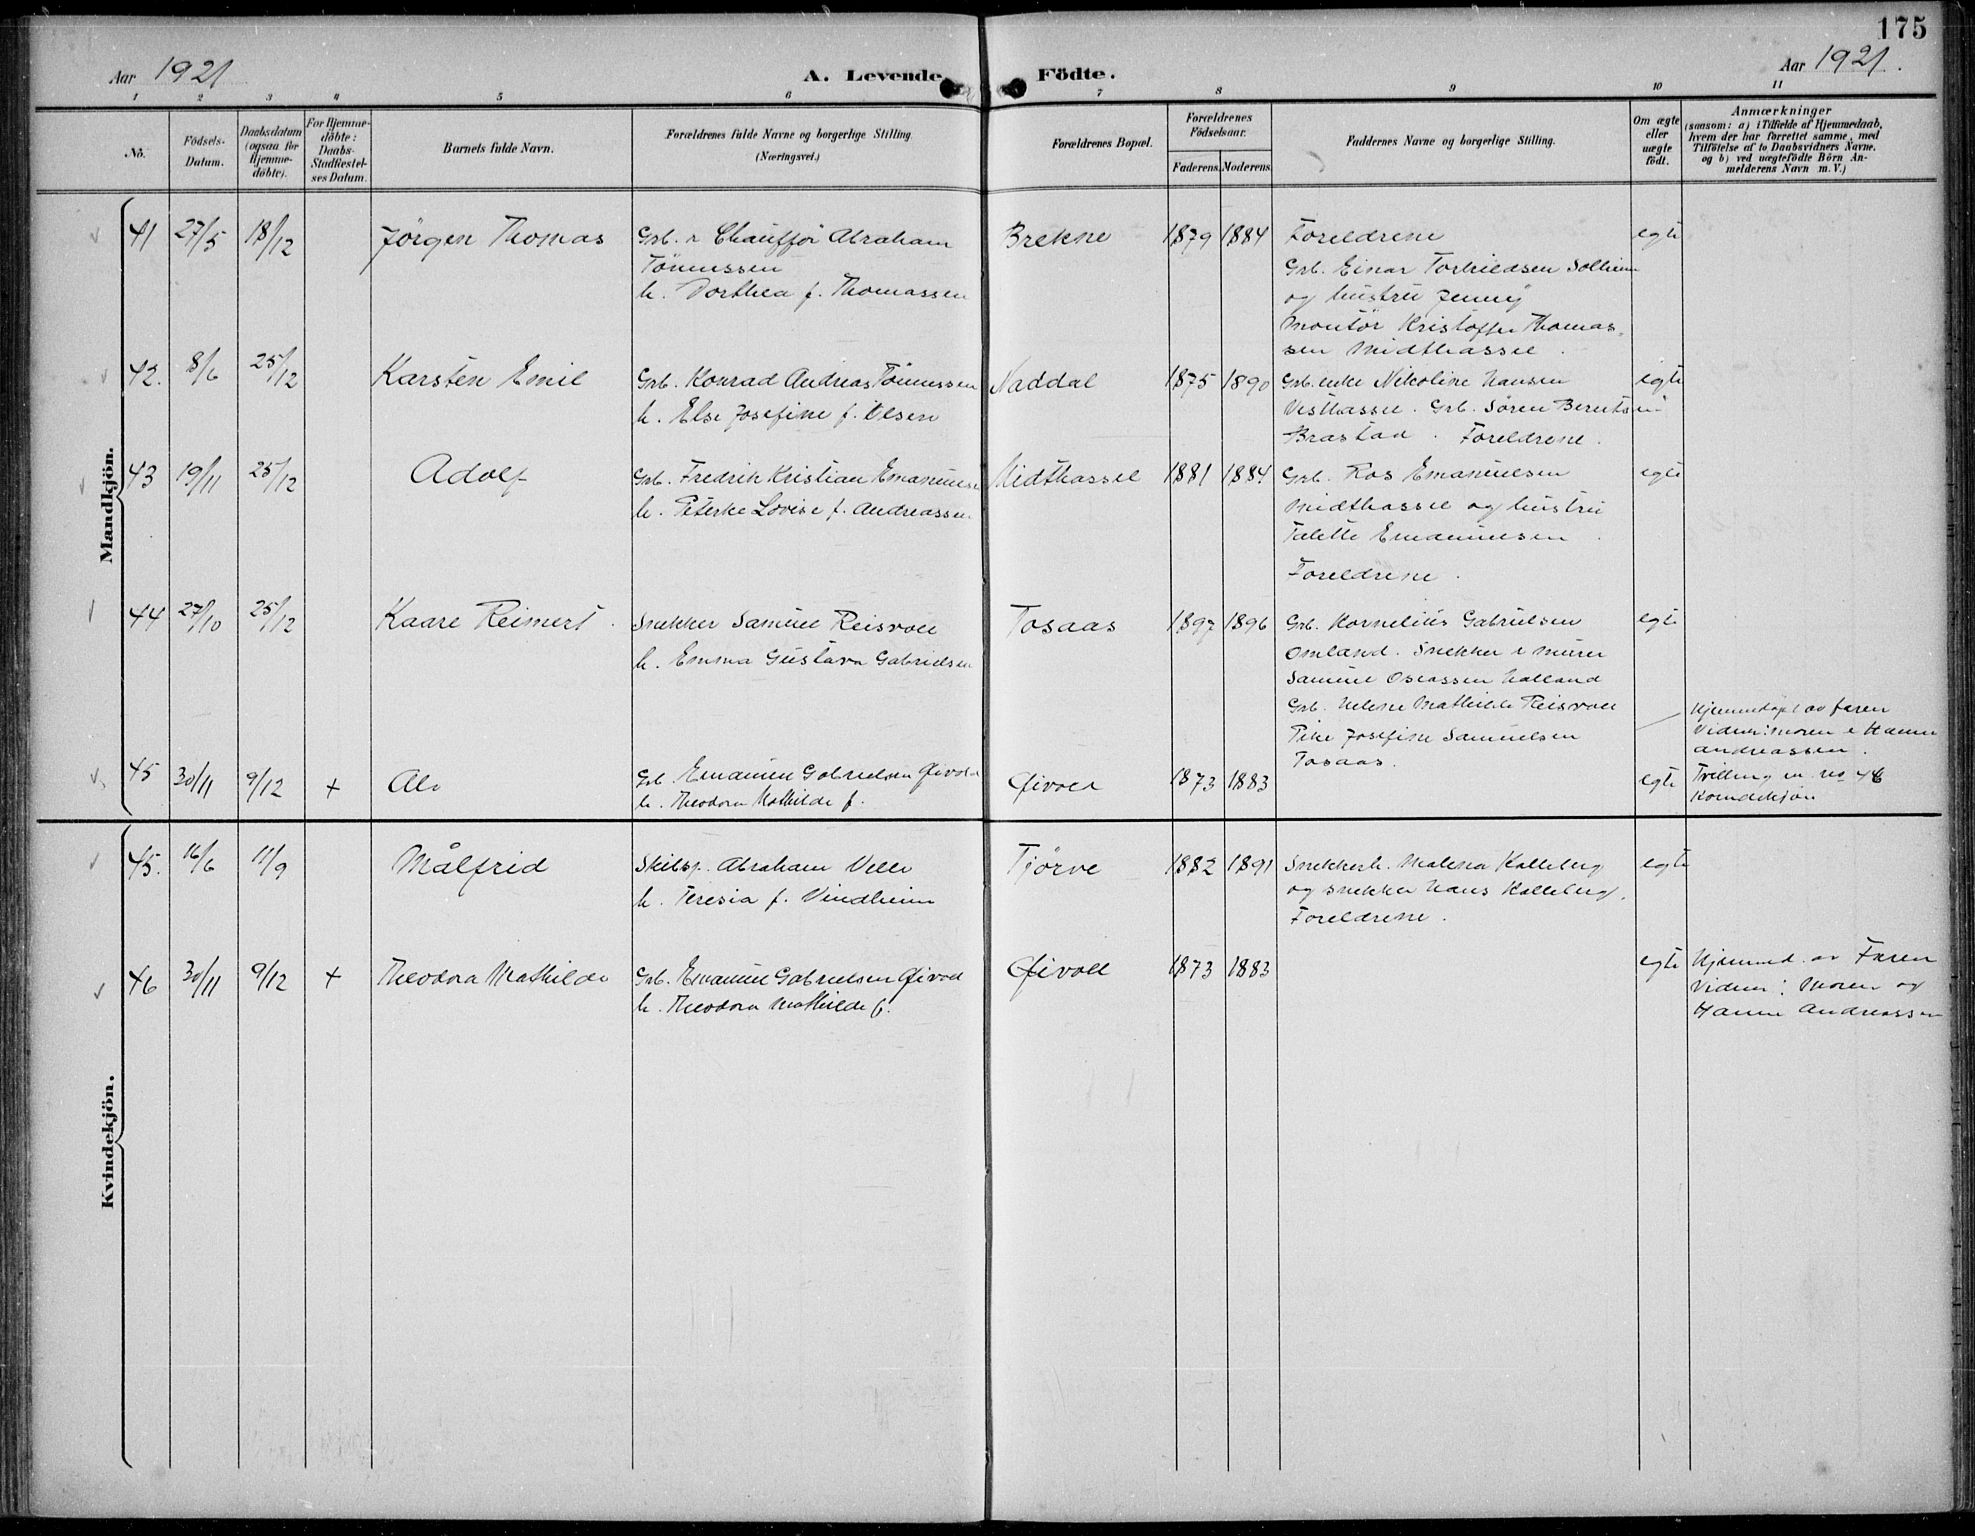 175
Aar 1921
A. Levende
Födte.
Aar 1921.
1 2 3 4 5 6 7 8 9 10 11
No.
Födsels-
Datum.
Daabsdatum
(ogsaa for
Hjemme-
döbte).
For Hjemme-
döbte:
Daabs-
Stadfæstel-
ses Datum.
Barnets fulde Navn.
Forældrenes fulde Navne og borgerlige Stilling.
(Næringsvei.)
Forældrenes Bopæl.
Forældrenes
Födselsaar.
Faderens. Moderens.
Faddernes Navne og borgerlige Stilling.
Om ægte
eller
uægte
födt.
Anmærkninger
(saasom: a) i Tilfælde af Hjemmedaab,
hvem der har forrettet samme, med
Tilföielse af to Daabsvidners Navne.
og b) ved uægtefödte Börn An-
melderens Navn m. V.)
Mandkjön.
41 27/5 18/12 Jörgen Thomas
Grb. & Chauffør Abraham
Tönnessen
h. Dorthea f. Thomassen
Brekne 1879 1884
Foreldrene
Grb. Einar Torkildsen Solheim
og hustru Jenny
Montör Kristoffer Thomas-
sen Midthassel.
egte
42. 8/6 25/12 Karsten Emil
Grb. Konrad Andreas Tönnessen
h. Else Josefine f. Olsen
Naddal 1875 1890
Grb.enke Nikoline Hansen
Vesthassel. Grb. Sören Berntsen
Brastad. Foreldrene.
egte
43 19/11 25/12 Adolf
Grb. Fredrik Kristian Emanuelsen
h. Peterke Lovise f. Andreassen
Midthassel 1881 1884
Grb. Emanuelsen
Midthassel og hustru
Talette Emanuelsen.
Foreldrene.
egte
44 27/10 25/12 Kaare Reimert.
Snekker Samuel Reisvoll
h. Emma Gustava Gabrielsen
Tosaas 1897 1896
Grb. Kornelius Gabrielsen
Omland. Snekker & murer
Samuel Oseassen Halland
Grb. Helene Mathilde Reisvoll
Pike Josefine Samuelsen
Tosaas.
egte
45 30/11 9/12 + Alv
Grb. Emanuel Gabrielsen Øivold
h. Theodora Mathilde f.
Øivoll 1873 1883
egte
Hjemmedøpt av faren
Vidner: moren & Hanne
Andreassen.
Tvilling m. no 46
Kvindekjön
Kvindekjön.
45. 16/6 11/9 Målfrid
Skibsf. Abraham Velle
h. Teresia f. Vindheim
Tjörve 1882 1891
Snekkerh. Malena Kalleberg
og snekker Hans Kalleberg.
Foreldrene.
egte
46 30/11 9/12 + Theodora Mathilde
Grb. Emanuel Gabrielsen Øivold
h. Theodora Mathilde f.
Øivoll 1873 1883
egte
Hjemmed. av Faren
Vidner: Moren og
Hanne Andreassen